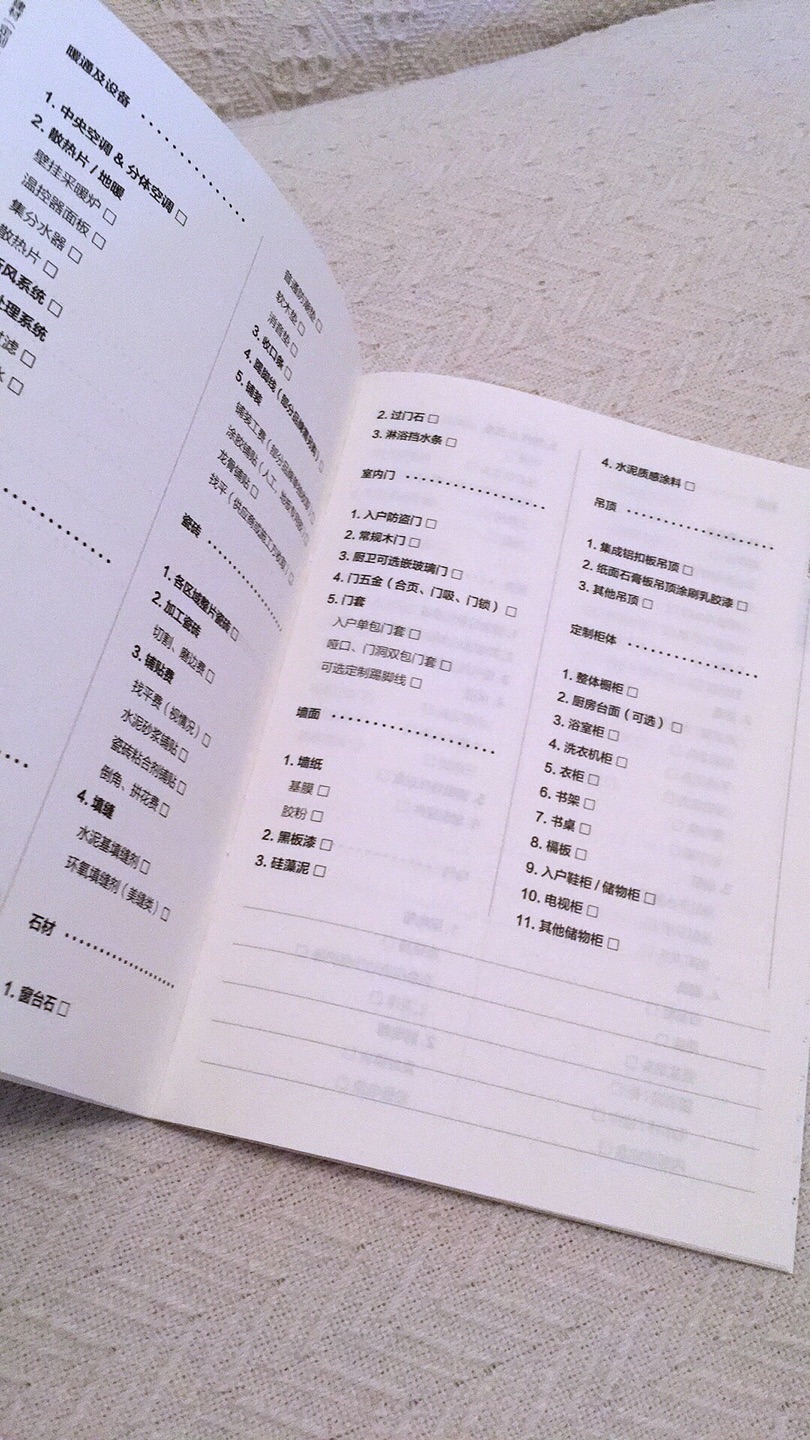 暖通及设备
1. 中央空调 & 分体空调 □
2. 散热片 / 地暖
壁挂采暖炉 □
温控器面板 □
集分水器 □
散热片 □
风系统 □
处理系统
过滤 □
水 □
普通防潮垫 □
软木垫 □
消音垫 □
3. 收口条 □
4. 踢脚线（部分品牌
5. 铺装
铺装工费（部分品牌
涂胶铺贴（人工、
龙骨铺贴 □
找平（供应商或施工方
瓷砖
1. 各区域整片瓷砖 □
2. 加工瓷砖
切割、磨边费 □
3. 铺贴费
找平费（视情况）□
水泥砂浆铺贴 □
瓷砖粘合剂铺贴 □
倒角、拼花费 □
4. 填缝
水泥基填缝剂 □
环氧填缝剂（美缝类）□
石材
1. 窗台石 □
2. 过门石 □
3. 淋浴挡水条 □
室内门
1. 入户防盗门 □
2. 常规木门 □
3. 厨卫可选嵌玻璃门 □
4. 门五金（合页、门吸、门锁）□
5. 门套
入户单包门套 □
哑口、门洞双包门套 □
可选定制踢脚线 □
墙面
1. 墙纸
基膜 □
胶粉 □
2. 黑板漆 □
3. 硅藻泥 □
4. 水泥质感涂料 □
吊顶
1. 集成铝扣板吊顶 □
2. 纸面石膏板吊顶涂刷乳胶漆 □
3. 其他吊顶 □
定制柜体
1. 整体橱柜 □
2. 厨房台面（可选）□
3. 浴室柜 □
4. 洗衣机柜 □
5. 衣柜 □
6. 书架 □
7. 书桌 □
8. 槅板 □
9. 入户鞋柜 / 储物柜 □
10. 电视柜 □
11. 其他储物柜 □